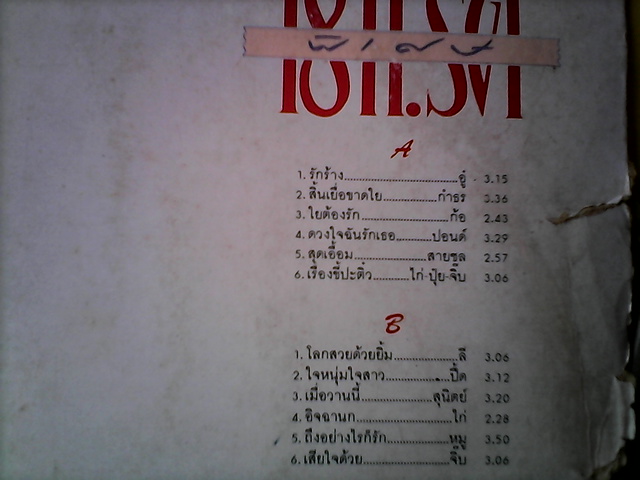 พิเศษ
A
1. รักร้าง..............................อู๋ - 3.15
2. สิ้นเยื่อขาดใย..............กำธร 3.36
3. ใยต้องรัก......................ก้อ 2.43
4. ดวงใจฉันรักเธอ.........ปอนด์ 3.29
5. สุดเอื้อม...................สายชล 2.57
6. เรื่องขี้ปะติ๋ว.........ไก่-ปุ้ย-จิ๊บ 3.06
B
1. โลกสวยด้วยยิ้ม................ลี 3.06
2. ใจหนุ่มใจสาว................ปี๊ด 3.12
3. เมื่อวานนี้...................สุนิตย์ 3.20
4. อิจฉานก.........................ไก่ 2.28
5. ถึงอย่างไรก็รัก................หมู 3.50
6. เสียใจด้วย......................จิ๊บ 3.06